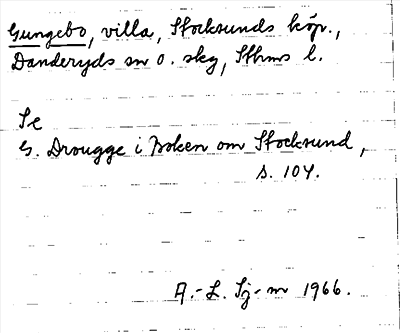 Gungebo, villa, Stocksunds köp.,
Danderyds sn o. skg, Sthms l.
Se
G. Drougge i Boken om Stocksund,
s. 104.
A.-L. Sj-m 1966.